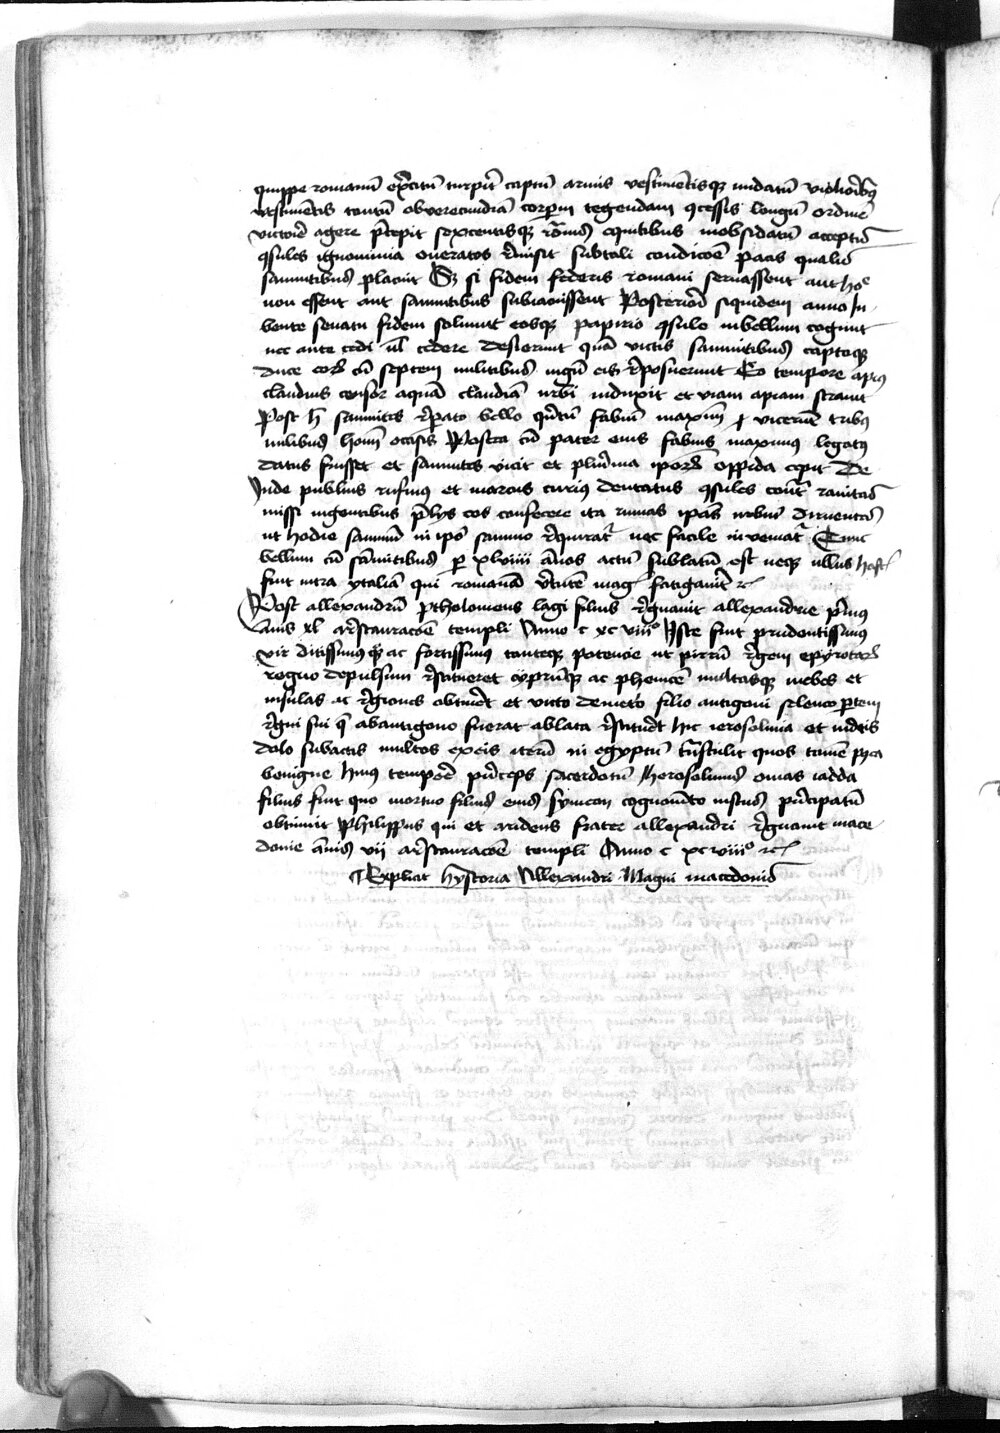 quippe romanū exercitū turpiter captū armis vestimētisqꝫ nudatū vilioribꝫ
vestimētis tantū ob verecundiā corporum tegendam ꝯcessis longū ordinē
victores agere precepit sexcentisqꝫ romanis equitibus in obsidatū acceptis
ꝯsules ignominia oneratos remisit sub tali condicōe pacis qualis
samnitibus placuit Sꝫ si fidem federis romani servassent aut hodie
non essent aut samnitibus subiacuissent Posteriori siquidem anno Iu-
bente senatu fidem solvunt eosqꝫ papirio ꝯsule in bellum cogunt
nec ante cedi vel cedere desierunt quā victis samnitibus captoqꝫ
duce eorum cū septem militibus iugū eis reposuerunt Eo tempore apius
claudius censor aquā claudiā urbi induxit et viam apiam stravit
Post hoc samnites reparato bello quintū fabium maximū vicerunt tribꝫ
milibus hominum occisis Postea cū pater eius fabius maximus legatꝫ
datus fuisset et samnites vicit et plurima ipsorum oppida cepit De
Inde publius rufinus et marcus curius dentatus ꝯsules contra samnites
missi ingentibus prelijs eos confecere ita ruinas ipsas urbium diruentes
ut hodie samniū in ipso samnio requiratur nec facile inveniatur Tunc
bellum cū samnitibus per xlviiii annos actū sublatū est neqꝫ ullus hostis
fuit intra ytaliā qui romanā virtutē magis fatigaverit ꝛc
Post allexandrū ptholomeus lagi filius regnavit allexandrie primus
annis xl a restauracōe templi Anno c xc viii° Iste fuit prudentissimus
vir ditissimusqꝫ ac fortissimus tanteqꝫ potencie ut pirrū regem epyrotarum
regno depulsum restitueret cyprūqꝫ ac phenicē multasqꝫ urbes et
insulas ac regiones obtinuit et victo demetrio filio antigoni seleuco partem
regni sui que ab antigono fuerat ablata restituit hic ierosolima et iudeis
dolo subactis multos ex eis iterū in egyptū transtulit quos tamē postea
benigne huius tempore princeps sacerdotū Iherosolimis onias iadda
filius fuit quo mortuo filius eius symeon cognomēto iustus principatū
obtinuit Philippus qui et arideus frater allexandri regnavit mace
donie annis vii a restauracōe templi Anno c xcviii° ꝛc
Explicit hystoria Allexandri Magni macedonis